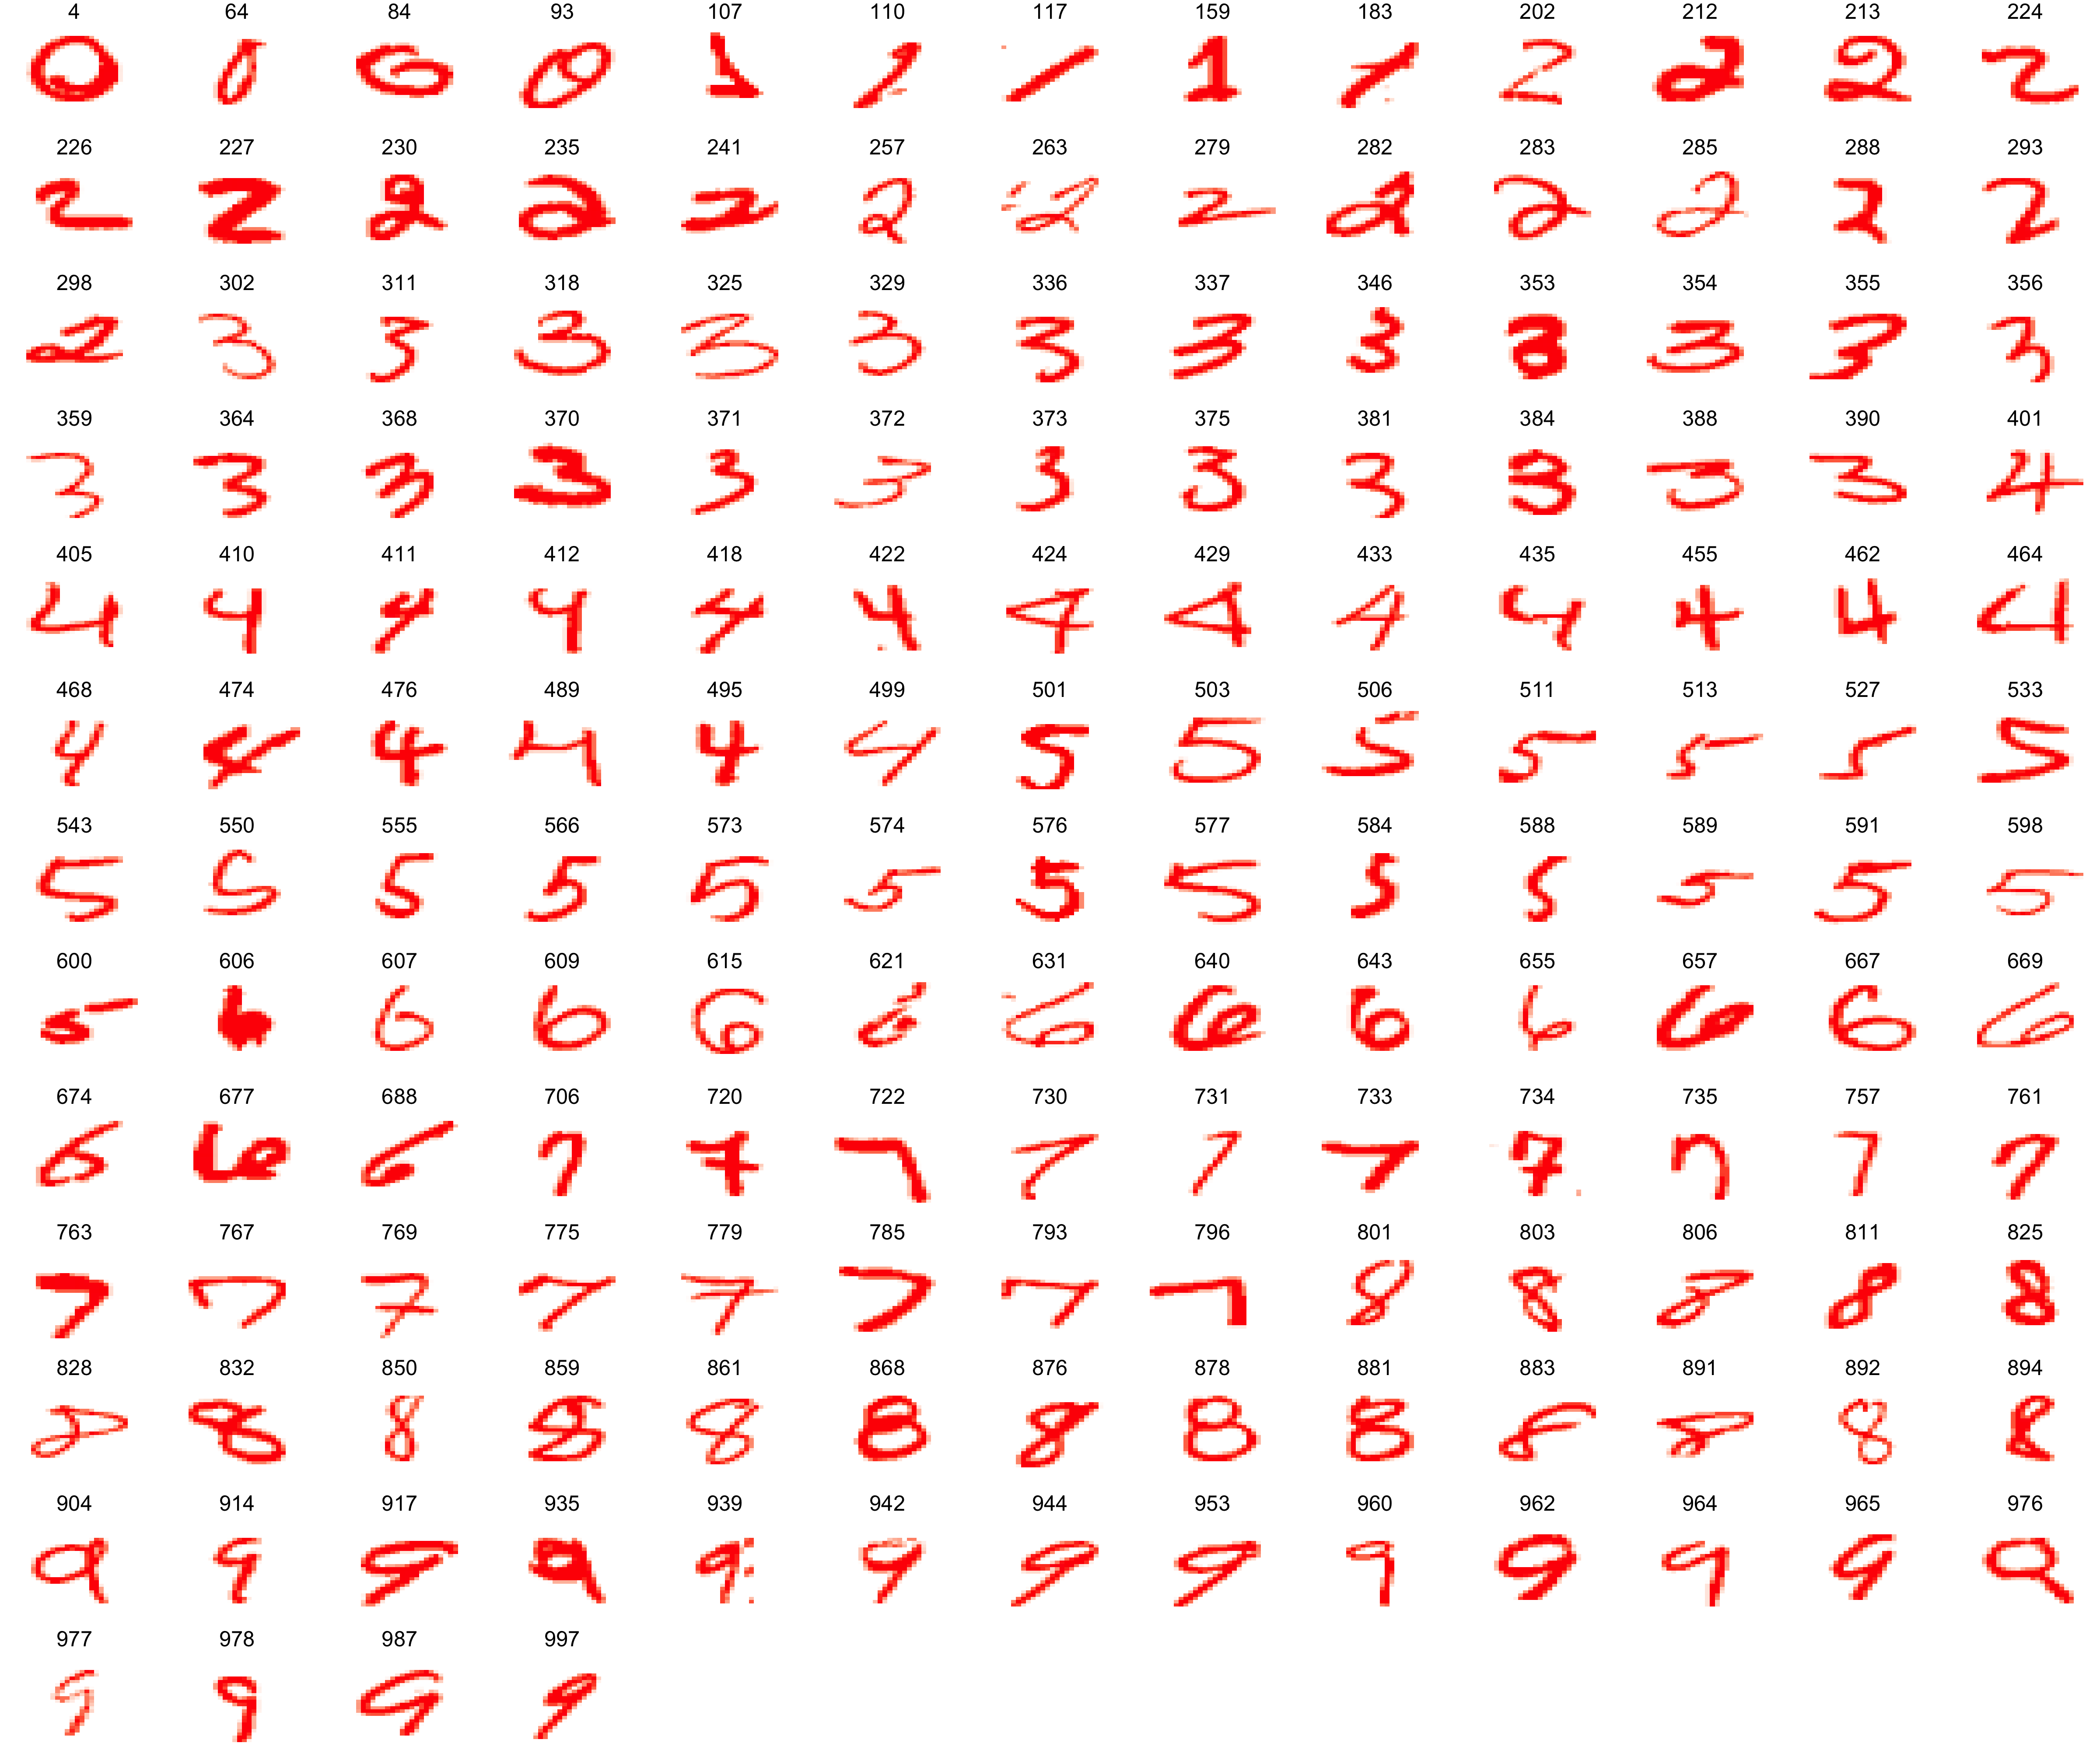 4 64 84 93 107 110 117 159 183 202 212 213 224
0 0 0 0 1 1 1 1 1 2 2 2 2
226 227 230 235 241 257 263 279 282 283 285 288 293
2 2 2 2 2 2 2 2 2 2 2 2 2
298 302 311 318 325 329 336 337 346 353 354 355 356
2 3 3 3 3 3 3 3 3 3 3 3 3
359 364 368 370 371 372 373 375 381 384 388 390 401
3 3 3 3 3 3 3 3 3 3 3 3 4
405 410 411 412 418 422 424 429 433 435 455 462 464
4 4 4 4 4 4 4 4 4 4 4 4 4
468 474 476 489 495 499 501 503 506 511 513 527 533
4 4 4 4 4 4 5 5 5 5 5 5 5
543 550 555 566 573 574 576 577 584 588 589 591 598
5 5 5 5 5 5 5 5 5 5 5 5 5
600 606 607 609 615 621 631 640 643 655 657 667 669
5 6 6 6 6 6 6 6 6 6 6 6 6
674 677 688 706 720 722 730 731 733 734 735 757 761
6 6 6 7 7 7 7 7 7 7 7 7 7
763 767 769 775 779 785 793 796 801 803 806 811 825
7 7 7 7 7 7 7 7 8 8 8 8 8
828 832 850 859 861 868 876 878 881 883 891 892 894
8 8 8 8 8 8 8 8 8 8 8 8 8
904 914 917 935 939 942 944 953 960 962 964 965 976
9 9 9 9 9 9 9 9 9 9 9 9 9
977 978 987 997
9 9 9 9